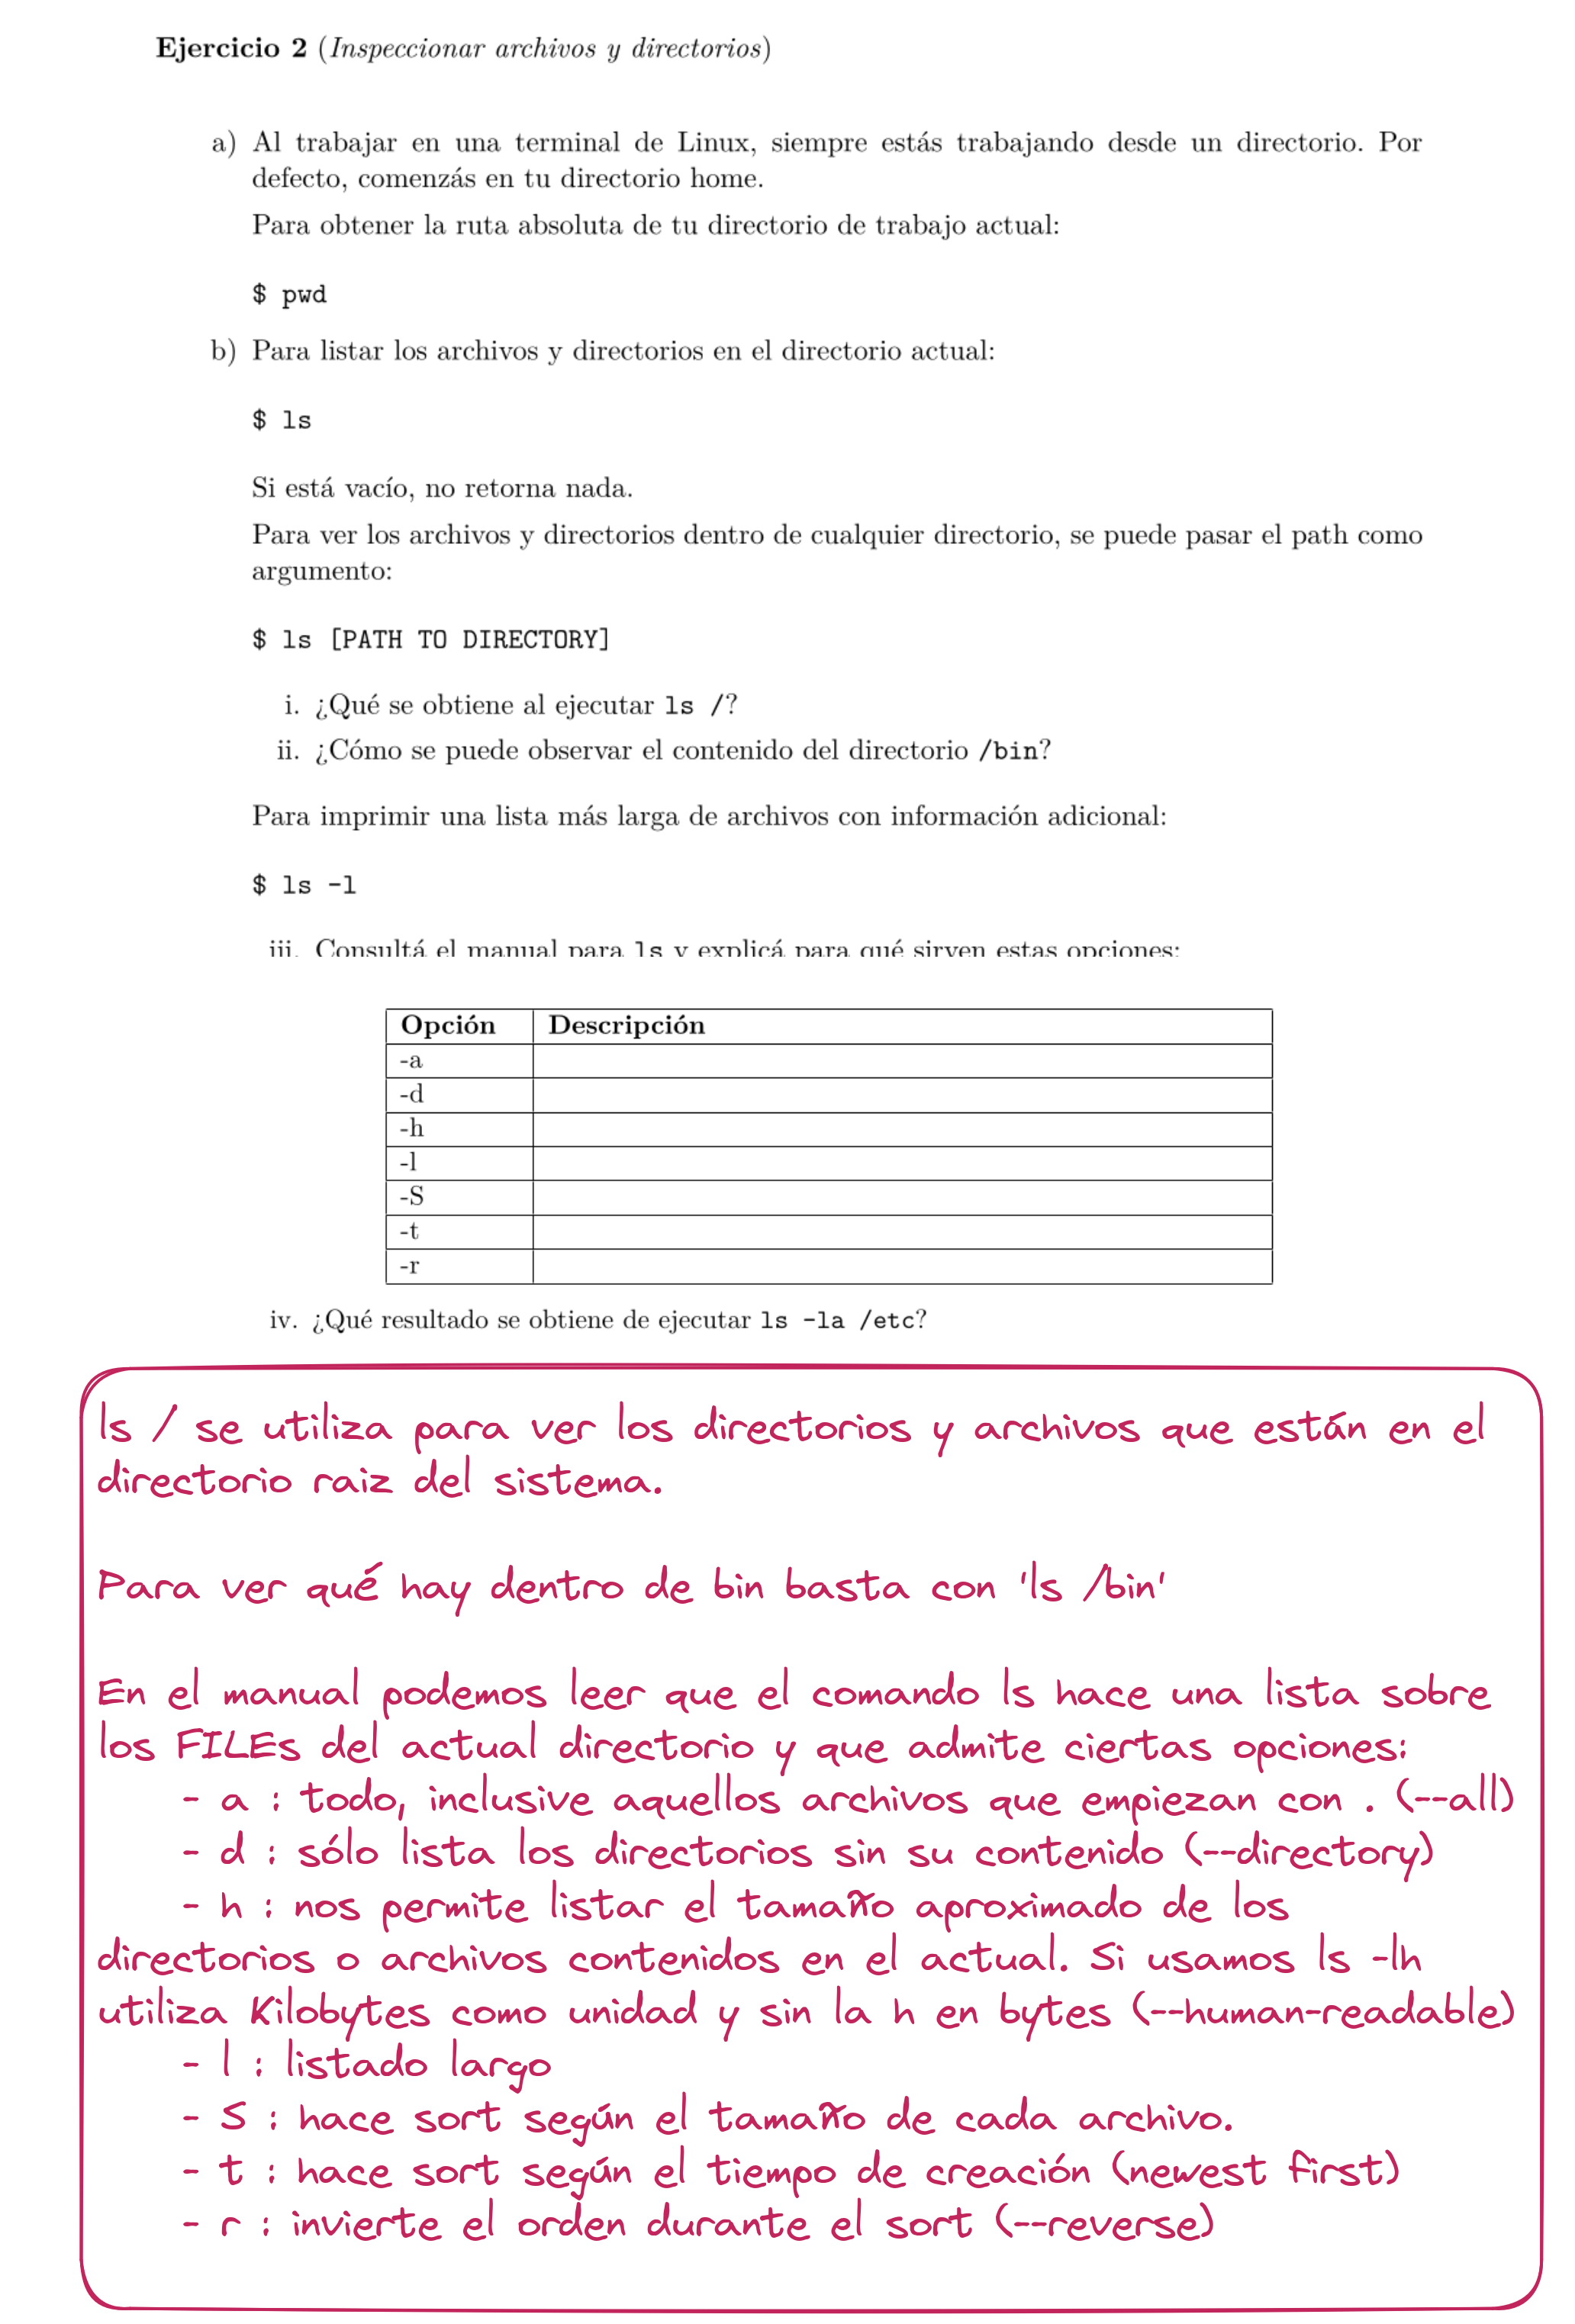 Ejercicio 2 (Inspeccionar archivos y directorios)
a) Al trabajar en una terminal de Linux, siempre estás trabajando desde un directorio. Por
defecto, comenzás en tu directorio home.
Para obtener la ruta absoluta de tu directorio de trabajo actual:
$ pwd
b) Para listar los archivos y directorios en el directorio actual:
$ ls
Si está vacío, no retorna nada.
Para ver los archivos y directorios dentro de cualquier directorio, se puede pasar el path como
argumento:
$ ls [PATH TO DIRECTORY]
i. ¿Qué se obtiene al ejecutar ls /?
ii. ¿Cómo se puede observar el contenido del directorio /bin?
Para imprimir una lista más larga de archivos con información adicional:
$ ls -l
iii. Consultá el manual para ls y explicá para qué sirven estas opciones:
Opción Descripción
-a
-d
-h
-l
-S
-t
-r
iv. ¿Qué resultado se obtiene de ejecutar ls -la /etc?
ls / se utiliza para ver los directorios y archivos que están en el
directorio raiz del sistema.
Para ver qué hay dentro de bin basta con 'ls /bin'
En el manual podemos leer que el comando ls hace una lista sobre
los FILEs del actual directorio y que admite ciertas opciones:
- a : todo, inclusive aquellos archivos que empiezan con . (--all)
- d : sólo lista los directorios sin su contenido (--directory)
- h : nos permite listar el tamaño aproximado de los
directorios o archivos contenidos en el actual. Si usamos ls -lh
utiliza Kilobytes como unidad y sin la h en bytes (--human-readable)
- l : listado largo
- S : hace sort según el tamaño de cada archivo.
- t : hace sort según el tiempo de creación (newest first)
- r : invierte el orden durante el sort (--reverse)